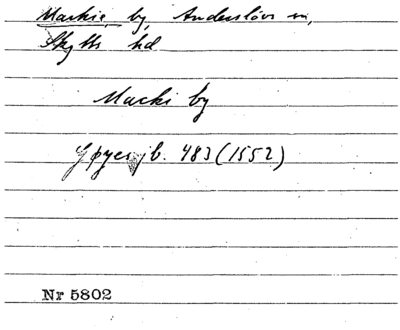 Markie by, Anderslövs sn,
Skytts hd
Marki by
Gøyes jb. 483 (1552)
Nr 5802